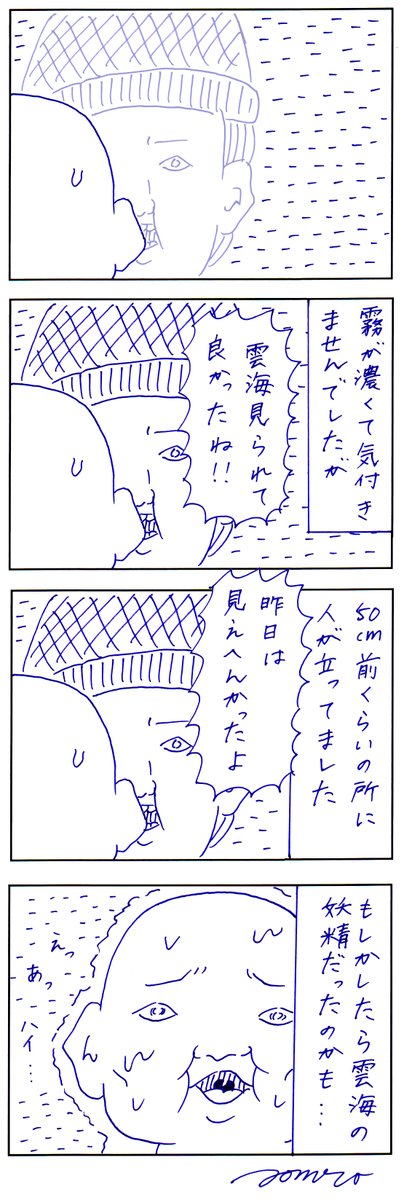 霧が濃くて気付き
ませんでしたが
雲海見られて
良かったね!!
50cm前くらいの所に
人が立ってました
昨日は
見えへんかったよ
もしかしたら雲海の
妖精だったのかも…
えっ
あっ
ハイ…